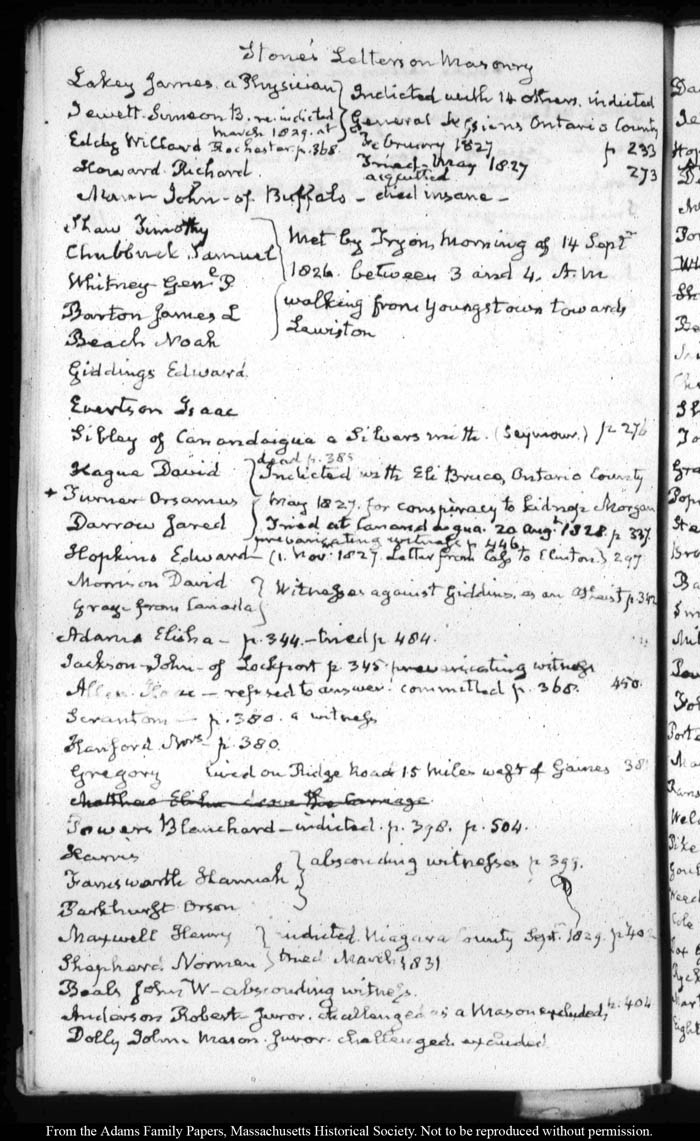 Stone's Letters on Masonry
Lakey James. a Physician } Indicted with 14 others. indicted
Jewett Simeon B. re.indicted General Sessions Ontario County
March 1829. at
Eddy Willard Rochester p. 368. February 1827 p 233
Howard Richard. Tried May 1827 273
acquitted
Mann John of Buffalo - died insane -
Shaw Timothy
Chubbuck Samuel Met by Tryon, Morning of 14 Septr
Whitney Gene P 1826. between 3 and 4. A.M
Barton James L walking from Youngstown towards
Beach Noah Lewiston
Giddings Edward
Evertson Isaac
Sibley of Canandaigua a Silversmith. (Seymour.) p 276
dead p. 385
Hague David } Indicted with Eli Bruce, Ontario County
+ Turner Orsamus May 1827. for conspiracy to kidnap Morgan
Darrow Jared } Tried at Canandaigua. 20 Augt 1828. p 337.
prevaricating witness p 446
Hopkins Edward - (1. Novr 1827. Letter from to Clinton) 297
Morrison David } Witnesses against Giddins, as an Atheist p 342
Gray from Canada
Adams Elisha - p. 344. - tried p 484.
Jackson John - of Lockport p. 345 prevaricating witness
Allen Isaac - refused to answer. committed p. 368. 450.
Scrantom - p. 380. a witness
Hanford Mrs - p. 380.
Gregory lived on Ridge Road 15 Miles west of Gaines 38
Matthas Elihu drove the Carriage
Powers Blanchard - indicted. p. 398. p. 504.
Harris
Farnsworth Hannah } absconding witnesses p 399.
Parkhurst Orson
Maxwell Henry } indicted Niagara County Septr 1829. p 402
Shepherd Norman } tried March 1831
Beals John W - absconding witness.
Anderson Robert - Juror. challenged as a Mason excluded, p. 404
Dolly John Mason. Juror. challenged. excluded
From the Adams Family Papers, Massachusetts Historical Society. Not to be reproduced without permission.